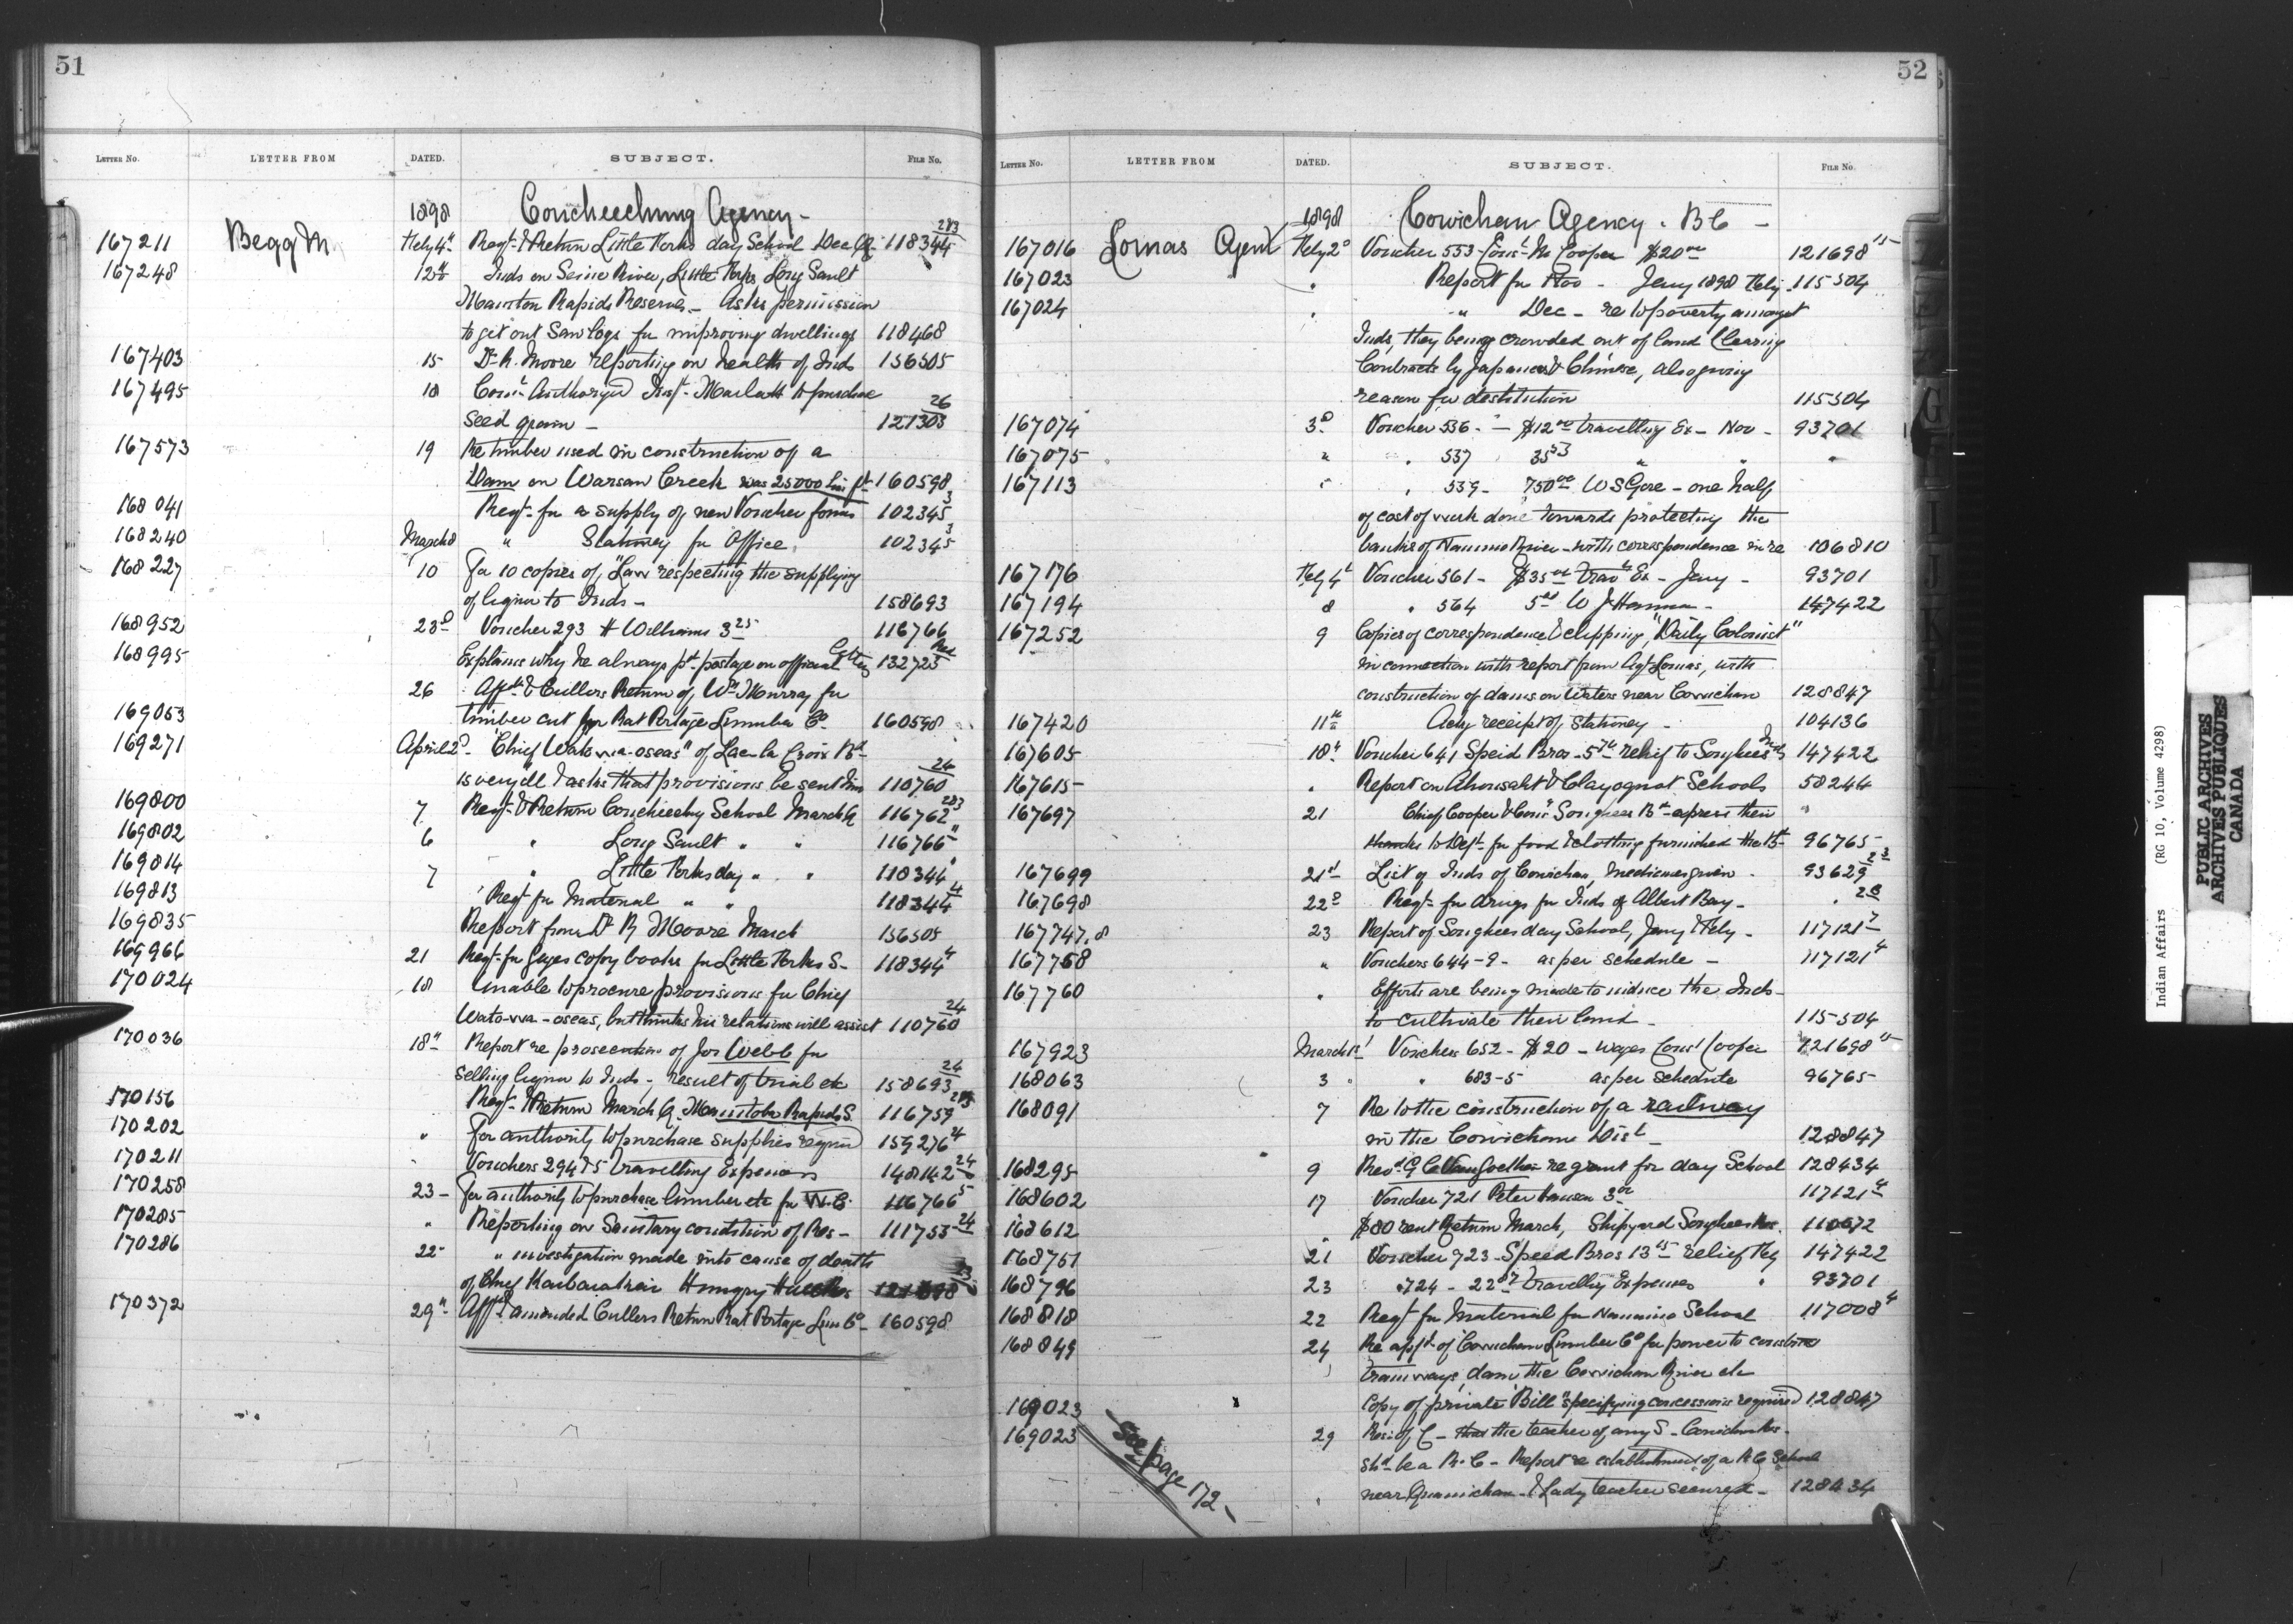 51
LETTER NO. LETTER FROM DATED. SUBJECT. FILE NO.
1898 Coucheeching Agency -
167211 Begg M. Feby 4th Reqt. & Return Little Forks day School Dec Qr 118344 283
167248 12th Inds on Seine River, Little Forks, Long Sault
Manitou Rapids Reserves - Asks permission
to get out Saw logs for improving dwellings 118468
167403 15 Dr. R. Moore reporting on health of Inds 156505
167495 18 Comr. Authorized Inst. to purchase
seed grain - 121303 26
167573 19 Re timber used in construction of a
Dam on Warsaw Creek was 25000 Lin ft 160598
168041 Reqt. for a supply of new Voucher forms 102345 3
168240 March 8 " Stationery for Office. 102345 3
168227 10 For 10 copies of, "Law respecting the supplying
of liquor to Inds - 158693
168952 23d Voucher 293 H Williams 3 25 116766
168995 Explains why he always pd. postage on official letters 132723
26 Affdt & Cullers Return of Wm Murray for
169053 timber cut for Rat Portage Lumber Co. 160598
169271 April 2d - Chief "Wato-wa-oseas" of Lac la Croix Bd -
is very ill & asks that provisions be sent him 110760 24
169800 7 Reqt. & Return Coucheeching School March Qr 116762 283
169802 6 " Long Sault " " 116766 "
169814 7 " Little Forks day " " 118344 "
169813 ' Reqt. for Material " " 118344 4
169835 Report from Dr R Moore March 156505
169966 21 Reqt. for Gages copy books for Little Forks S - 118344 4
170024 18 Unable to procure provisions for Chief
Wato-wa-oseas, but thinks his relations will assist 110760 24
170036 18th Report re prosecution of Jos Webb for
selling liquor to Inds - result of trial etc 158693 24
170156 Reqt. & Return March Q. Manitou Rapids S. 116759 283
170202 " For authority to purchase supplies required 159276 24
170211 Vouchers 294 & 5 Travelling Expenses 148142 24
170258 23 - For authority to purchase lumber etc for W.C. 116766 5
170285 " Reporting on Sanitary condition of Res - 111755 24
170286 22 - " investigation made into cause of death
of Chief Hungry Hall
170372 29th - Affdt amended Cullers Return Rat Portage Lum Co - 160598
52
LETTER NO. LETTER FROM DATED. SUBJECT. FILE NO.
1898 Cowichan Agency. B C -
167016 Lomas Agent Feby 2d Voucher 553 - Const. M Cooper $20 00 121698 15
167023 " Report for Nov - Jany 1898 Feby 115304
167024 " " Dec - re to poverty amongst
Inds, they being crowded out of land Clearing
Contracts by Japanese & Chinese, also giving
reason for destitution 115304
167074 3d Voucher 536 - " - $12 00 travelling Ex - Nov - 93701
167075 " " 537 35 53 " " "
167113 " " 539 - 750 00 W S Gore - one half
of cost of work done towards protecting the
banks of Nanaimo River - with correspondence in re 106810
167176 Feby 4th Voucher 561 - $35 00 Trav. Ex - Jany - 93701
167194 8 " 564 5 00 W J - 147422
167252 9 Copies of correspondence & clipping, "Daily Colonist"
in connection with report from Agt Lomas, with
construction of dams on Waters near Cowichan 128847
167420 11th Ackg receipt of stationery - 104136
167605 18th Voucher 641 Speid Bros - 5 relief to Songhees Inds 147422
167615 " Report on Ahousaht & Clayoquot Schools 58244
167697 21 Chief Cooper & Songhees Bd - express their
thanks to Dept. for food & clothing furnished the Bd - 96765
167699 21st List of Inds of Cowichan, Medicines given - 93629 23
167698 22d Reqt. for drugs for Inds of Albert Bay - " 28
167747.8 23 Report of Songhees day School, Jany & Feby - 117121 7
167758 " Vouchers 644-9 - as per schedule - 117121 4
167760 " Efforts are being made to induce the Inds -
to cultivate their land - 115304
167923 March 1st Voucher 652 - $20 - wages Const Cooper 121698 15
168063 3 " " 683-5 as per schedule 96765
168091 7 Re to the construction of a railway
in the Cowichan Dist - 128847
168295 9 Revd. G C Van Goethem re grant for day School 128434
168602 17 Voucher 721 Peter Hansen 3 00 117121 4
168612 " $80 rent Return March, Shipyard Songhees Res. 110672
168751 21 Voucher 723 - Speed Bros 13 15 relief Feby 147422
168796 23 " 724 - 22 Travellg Expenses " 93701
168818 22 Reqt for Material for Nanaimo School 117008 4
168849 24 Re appln of Cowichan Lumber Co for power to construct
tramways, dam the Cowichan River etc
169023 Copy of private "Bill" specifying concessions required 128847
169023 29 Res: of C - that the teacher of any S - Cowichan Res -
shd be a R.C - Report re establishment of a R C School
near Quamichan - & Lady teacher secured - 128434
See page 172 -
Indian Affairs (RG 10, Volume 4298)
PUBLIC ARCHIVES
ARCHIVES PUBLIQUES
CANADA